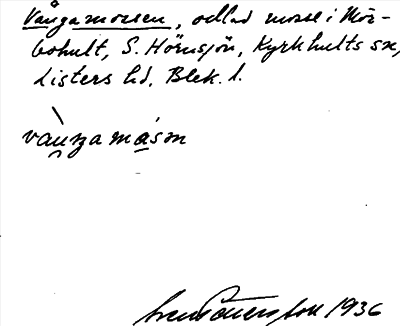 Vångamossen, odlad mosse i Mör-
bohult, S. Hörnsjön, Kyrkhults sn,
Listers hd, Blek. l.
vànga måsrn
1936